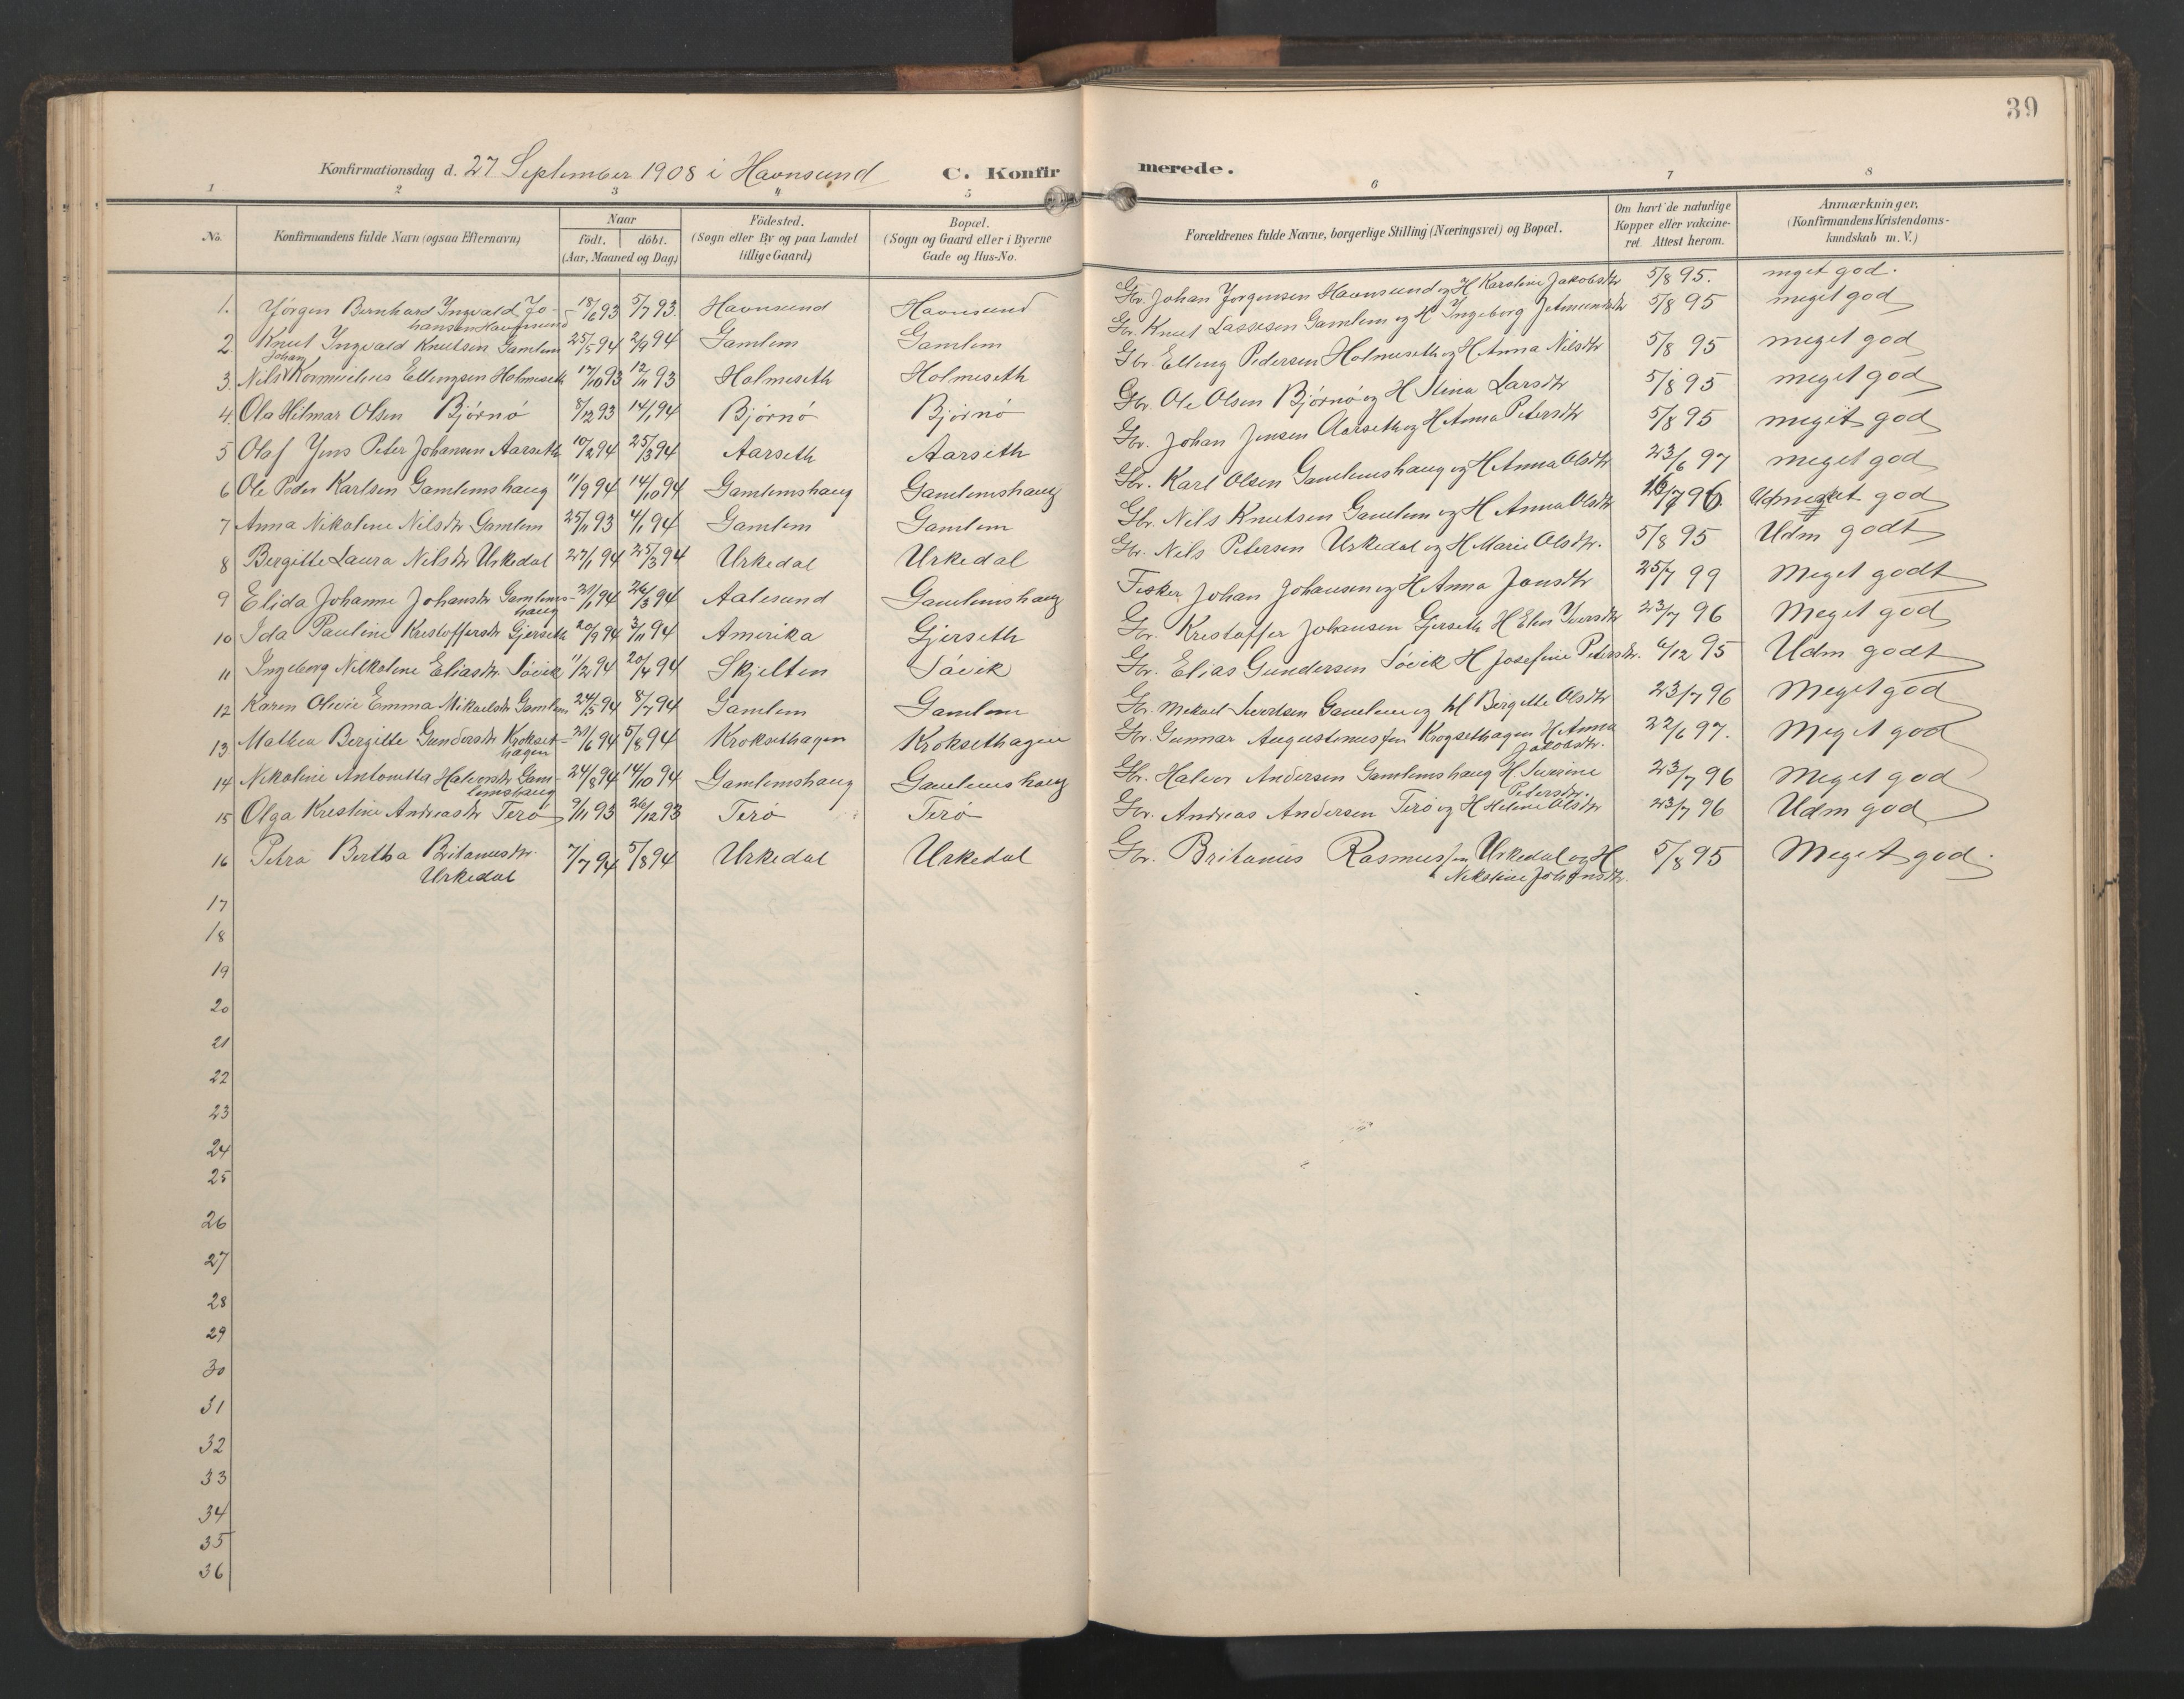 39
Konfirmationsdag d. 27 September 1908 i Havnsund C. Konfirmerede.
1 2 3 4 5 6 7 8
No. Konfirmandens fulde Navn (ogsaa Efternavn) Naar födt. döbt. (Aar, Maaned og Dag) Födested. (Sogn eller By og paa Landet tillige Gaard) Bopæl. (Sogn og Gaard eller i Byerne Gade og Hus-No. Forældrenes fulde Navne, borgerlige Stilling (Næringsvei) og Bopæl. Om havt de naturlige Kopper eller vakcineret. Attest herom. Anmærkninger, (Konfirmandens Kristendomskundskab m. V.)
1. Jörgen Bernhard Ingvald Jo- 18/6 93 5/7 93. Havnsund Havnsund Gbr. Johan Jørgensen Havnsund og H Karoline Jakobsdtr 5/8 95. meget god.
hansen Havnsund
2. Knut Ingvald Knutsen Gamlem 25/5 94 2/9 94 Gamlem Gamlem Gbr. Knut Lassesen Gamlem og H Ingeborg 5/8 95 meget god
Johan
3. Nils Kornnelius Ellingsen Holmeseth 17/10 93 12/11 93 Holmeseth Holmeseth Gbr. Elling Pedersen Holmeseth og H Anna Nilsdtr 5/8 95 meget god
4. Ola Hilmar Olsen Björnö 8/12 93 14/1 94 Björnö Björnö Gbr. Ole Olsen Björnö og H Stina Larsdtr 5/8 95 meget god
5 Olaf Jens Peter Johansen Aarseth 10/2 94 25/3 94 Aarseth Aarseth Gbr. Johan Jensen Aarseth og H Anna Petersdtr 5/8 95 meget god
6 Ole Peder Karlsen Gamlemshaug 11/9 94 14/10 94 Gamlemshaug Gamlemshaug Gbr. Karl Olsen Gamlemshaug og H Anna Olsdtr 23/6 97 meget god
7 Anna Nikoline Nilsdtr Gamlem 25/11 93 4/1 94 Gamlem Gamlem Gbr. Nils Knutsen Gamlem og H Anna Olsdtr 96. god
8 Bergitte Laura Nilsdtr Urkedal 27/1 94 25/3 94 Urkedal Urkedal Gbr. Nils Petersen Urkedal og H Marie Olsdtr. 5/8 95 Udm godt
9 Elida Johanne Johansdtr Gamlems- 21/1 94 26/3 94 Aalesund Gamlemshaug Fisker Johan Johansen og H Anna Jonsdtr 25/7 99 Meget godt
haug
10 Ida Pauline Kristoffersdtr Gjerseth 20/9 94 3/11 94 Amerika Gjerseth Gbr. Kristoffer Johansen Gjerseth H Elen Iversdtr 23/7 96 Meget god
11 Ingeborg Nilkoline Eliasdtr. Sövik 11/2 94 20/4 94 Skjelten Sövik Gbr. Elias Gundersen Sövik H Josefine Petersdtr. 6/12 95 Udm godt
12 Karen Olivie Emma Mikaelsdtr Gamlem 24/5 94 8/7 94 Gamlem Gamlem Gbr. Mekael Sivertsen Gamlem og H Birgitte Olsdtr 23/7 96 Meget god
13 Mathea Bergitte Gundersdtr Krokset- 21/6 94 5/8 94 Kroksethagen Kroksethagen Gbr. Gunnar Augustinussen Krogsethagen H Anna 22/6 97. Meget god
hagen Jakobsdtr.
14 Nikoline Antonetta Halvorsdtr Gam- 24/8 94 14/10 94 Gamlemshaug Gamlemshaug Gbr. Halvor Andersen Gamlemshaug H. Severine 23/7 96 Meget god
lemshaug Petersdtr.
15 Olga Kristine Andreasdtr Terö 9/11 93 26/12 93 Terö Terö Gbr. Andreas Andersen Terö og H Heline Olsdtr 23/7 96 Udm god
16 Petra Bertha Britanusdtr. 7/7 94 5/8 94 Urkedal Urkedal Gbr. Britanus Rasmussen Urkedal og H 5/8 95 Meget god.
Urkedal Nikoline Johansdtr.
17
18
19
20
21
22
23
24
25
26
27
28
29
30
31
32
33
34
35
36